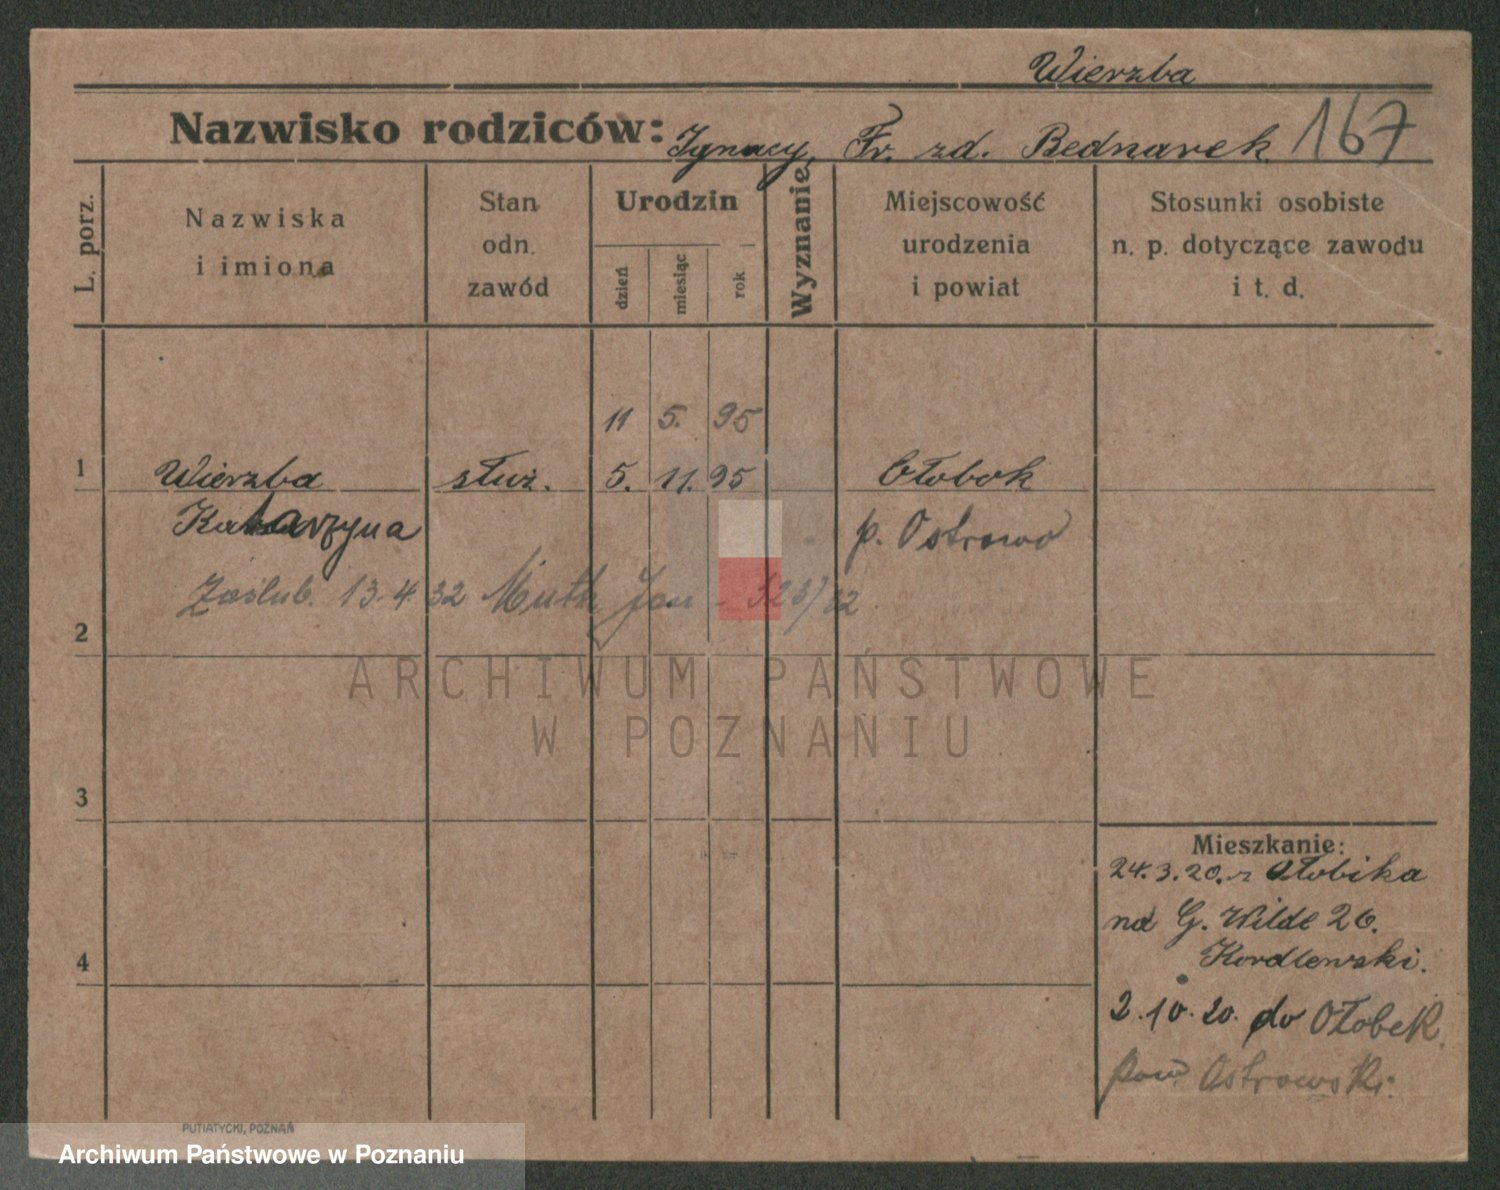 Wierzba
Nazwisko rodziców: Ignacy, Fr. zd. Bednarek 167
L. porz.
Nazwiska
i imiona
Stan
odn.
zawód
Urodzin
dzień
miesiąc
rok
Wyznanie
Miejscowość
urodzenia
i powiat
Stosunki osobiste
n. p. dotyczące zawodu
i t. d.
11 5. 95
1 Wierzba służ. 5. 11. 95 Ołobok
Katarzyna p. Ostrowo
Zaślub. 13.4.32 Muth Jan - 323/32
2
ARCHIWUM PAŃSTWOWE
W POZNANIU
3
Mieszkanie:
24.3.20. z Ołobika
na G. Wilde 26.
4 Kordlewski.
2.10.20. do Ołobek
pow Ostrowski.
PUTIATYCKI, POZNAŃ
Archiwum Państwowe w Poznaniu